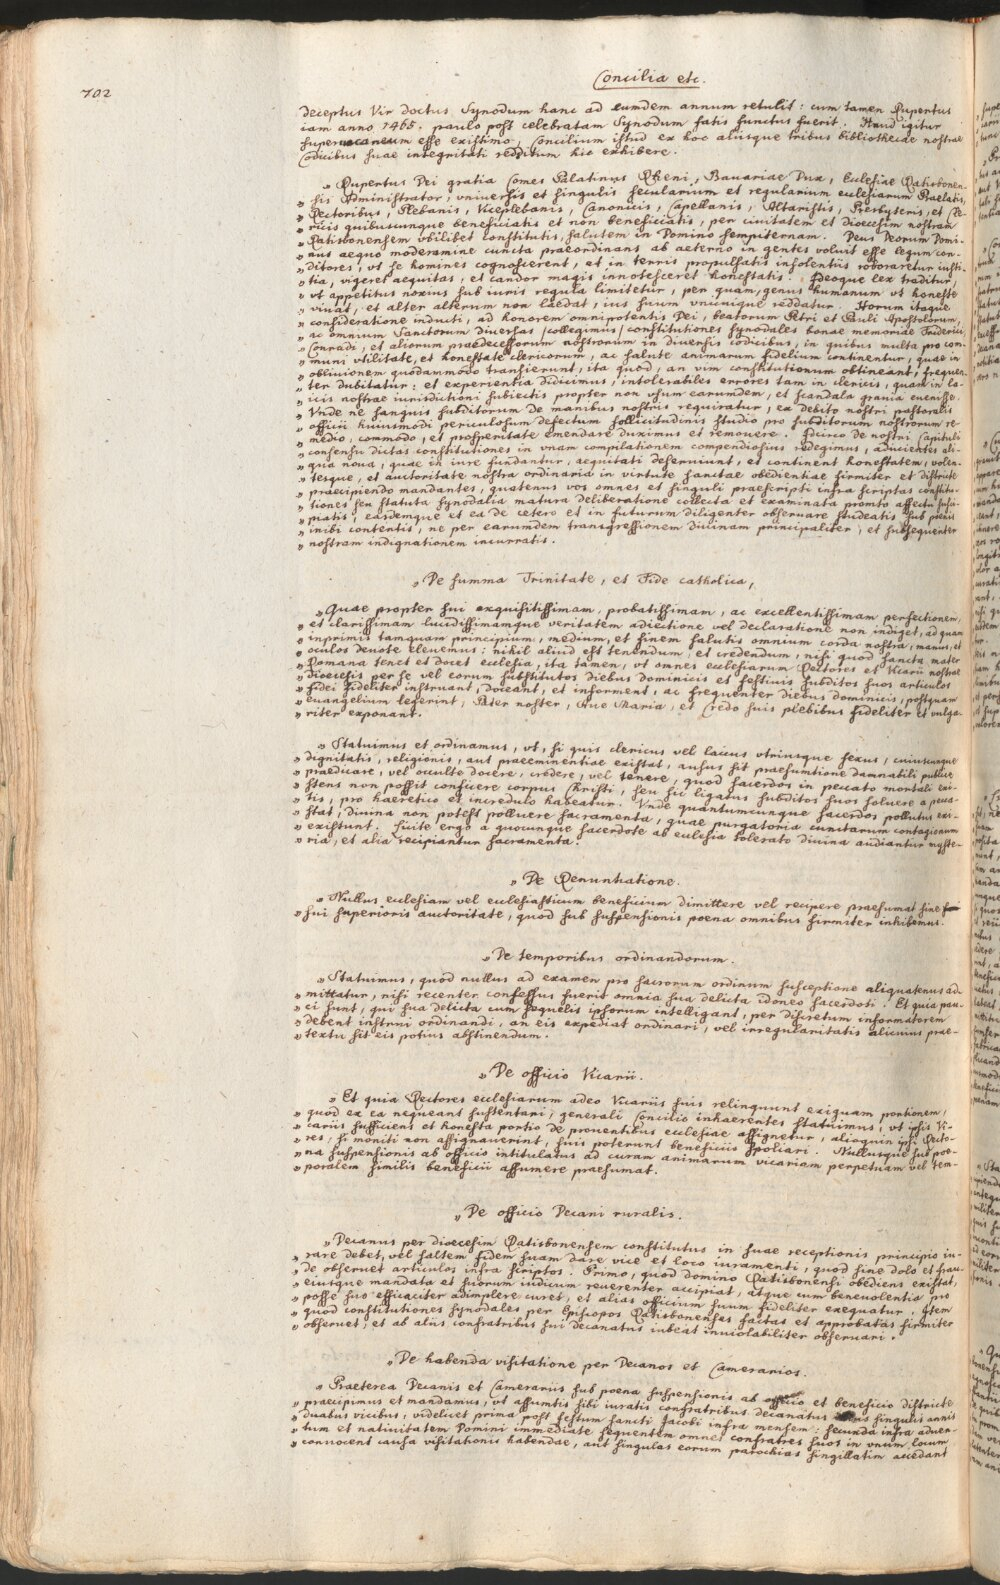 702
Concilia etc.
deceptus Vir doctus Synodum hanc ad eumdem annum retulit: cum tamen Rupertus
iam anno 1465. paulo post celebratam Synodum fatis functus fuerit. Haud igitur
supervacaneum esse existimo, Concilium istud ex hoc aliisque tribus bibliothecae nostrae
Codicibus suae integritati redditum hic exhibere.
„ Rupertus Dei gratia Comes Palatinus Rheni, Bauariae Dux, Ecclesiae Ratisbonen-
„ sis Administrator, vniuersis et singulis secularium et regularium ecclesiarum Praelatis,
„ Rectoribus, Plebanis, Viceplebanis, Canonicis, Capellanis, Altaristis, Presbyteris, et Cle-
„ ricis quibuscunque beneficiatis et non beneficiatis, per ciuitatem et dioecesim nostram
„ Ratisbonensem vbilibet constitutis, salutem in Domino sempiternam. Deus Deorum Domi-
„ nus aequo moderamine cuncta praeordinans ab aeterno in gentes voluit esse legum con-
„ ditores, vt se homines cognoscerent, et in terris propulsatis insolentiis roboraretur iusti-
„ tia, vigeret aequitas, et candor magis innotesceret honestatis. Ideoque lex traditur,
„ vt appetitus noxius sub iuris regula limitetur, per quam genus humanum vt honeste
„ viuat, et alter alterum non laedat, ius suum vnicuique reddatur. Horum itaque
„ consideratione inducti, ad honorem omnipotentis Dei, beatorum Petri et Pauli Apostolorum,
„ ac omnium Sanctorum diuersas (collegimus) constitutiones synodales bonae memoriae Friderici,
„ Conradi, et aliorum praedecessorum nostrorum in diuersis codicibus, in quibus multa pro com-
„ muni vtilitate, et honestate clericorum, ac salute animarum fidelium continentur, quae in
„ obliuionem quodammodo transierunt, ita quod, an vim constitutionum obtineant, frequen-
„ ter dubitatur: et experientia didicimus, intolerabiles errores tam in clericis, quam in la-
„ icis nostrae iurisdictioni subiectis propter non vsum earumdem, et scandala grauia euenisse.
„ Vnde ne sanguis subditorum de manibus nostris requiratur, ex debito nostri pastoralis
„ officii huiusmodi periculosum defectum sollicitudinis studio pro subditorum nostrorum re-
„ medio, commodo, et prosperitate emendare duximus et remouere. Idcirco de nostri Capituli
„ consensu dictas constitutiones in vnam compilationem compendiosius redegimus, adiicientes ali-
„ qua noua, quae in iure fundantur, aequitati deseruiunt, et continent honestatem, volen-
„ tesque, et auctoritate nostra ordinaria in virtute sanctae obedientiae firmiter et districte
„ praecipiendo mandantes, quatenus vos omnes et singuli praescripti infra scriptas constitu-
„ tiones seu statuta synodalia matura deliberatione collecta et examinata pronto affectu susci-
„ piatis, easdemque et ea de cetero et in futurum diligenter obseruare studeatis sub poenis
„ inibi contentis, ne per earumdem transgressionem diuinam principaliter, et subsequenter
„ nostram indignationem incurratis.
„ De summa Trinitate, et Fide catholica,
„ Quae propter sui exquisitissimam, probatissimam, ac excellentissimam perfectionem,
„ et clarissimam lucidissimamque veritatem adiectione vel declaratione non indiget, ad quam
„ inprimis tamquam principium, medium, et finem salutis omnium corda nostra, manus, et
„ oculos deuote eleuemus: nihil aliud est tenendum, et credendum, nisi quod sancta mater
„ Romana tenet et docet ecclesia, ita tamen, vt omnes ecclesiarum Rectores et Vicarii nostrae
„ dioecesis per se vel eorum substitutos diebus dominicis et festiuis subditos suos articulos
„ fidei fideliter instruant, doceant, et informent, ac frequenter diebus dominicis, postquam
„ euangelium legerint, Pater noster, Aue Maria, et Credo suis plebibus fideliter et vulga-
„ riter exponant.
„ Statuimus et ordinamus, vt, si quis clericus vel laicus vtriusque sexus, cuiuscunque
„ dignitatis, religionis, aut praeeminentiae existat, ausus sit praesumtione damnabili publice
„ praedicare, vel occulte docere, credere, vel tenere, quod sacerdos in peccato mortali exi-
„ stens non possit conficere corpus Christi, seu sic ligatus subditos suos soluere a pecca-
„ tis, pro haeretico et incredulo habeatur. Vnde quantumcunque sacerdos pollutus exi-
„ stat, diuina non potest polluere sacramenta, quae purgatoria cunctarum contagionum
„ existunt. Licite ergo a quocunque sacerdote ab ecclesia tolerato diuina audiantur myste-
„ ria, et alia recipiantur sacramenta.
„ De Renuntiatione.
„ Nullus ecclesiam vel ecclesiasticum beneficium dimittere vel recipere praesumat sine
„ sui superioris auctoritate, quod sub suspensionis poena omnibus firmiter inhibemus.
„ De temporibus ordinandorum.
„ Statuimus, quod nullus ad examen pro sacrorum ordinum susceptione aliquatenus ad-
„ mittatur, nisi recenter confessus fuerit omnia sua delicta idoneo sacerdoti. Et quia pau-
„ ci sunt, qui sua delicta cum sequelis ipsorum intelligant, per discretum informatorem
„ debent instrui ordinandi, an eis expediat ordinari, vel irregularitatis alicuius prae-
„ textu sit eis potius abstinendum.
„ De officio Vicarii.
„ Et quia Rectores ecclesiarum adeo Vicariis suis relinquunt exiguam portionem,
„ quod ex ea nequeant sustentari, generali Concilio inhaerentes statuimus, vt ipsis Vi-
„ cariis sufficiens et honesta portio de prouentibus ecclesiae assignetur, alioquin ipsi Recto-
„ res, si moniti non assignauerint, suis poterunt beneficiis spoliari. Nullusque sub poe-
„ na suspensionis ab officio intitulatus ad curam animarum vicariam perpetuam vel tem-
„ poralem similis beneficii assumere praesumat.
„ De officio Decani ruralis.
„ Decanus per dioecesim Ratisbonensem constitutus in suae receptionis principio iu-
„ rare debet, vel saltem fidem suam dare vice et loco iuramenti, quod sine dolo et frau-
„ de obseruet articulos infra scriptos. Primo, quod domino Ratisbonensi obediens existat,
„ eiusque mandata et suorum iudicum reuerenter accipiat, atque cum beneuolentia pro
„ posse suo efficaciter adimplere curet, et alias officium suum fideliter exequatur. Item
„ quod constitutiones synodales per Episcopos Ratisbonenses factas et approbatas firmiter
„ obseruet, et ab aliis confratribus sui decanatus iubeat inuiolabiliter obseruari.
„ De habenda visitatione per Decanos et Camerarios.
„ Praeterea Decanis et Camerariis sub poena suspensionis ab officio et beneficio districte
„ praecipimus et mandamus, vt assumtis sibi iuratis confratribus decanatus singulis annis
„ duabus vicibus, videlicet prima post festum sancti Jacobi infra mensem: secunda infra aduen-
„ tum et natiuitatem Domini immediate sequentem omnes confratres suos in vnum locum
„ conuocent causa visitationis habendae, aut singulas eorum parochias singillatim accedant